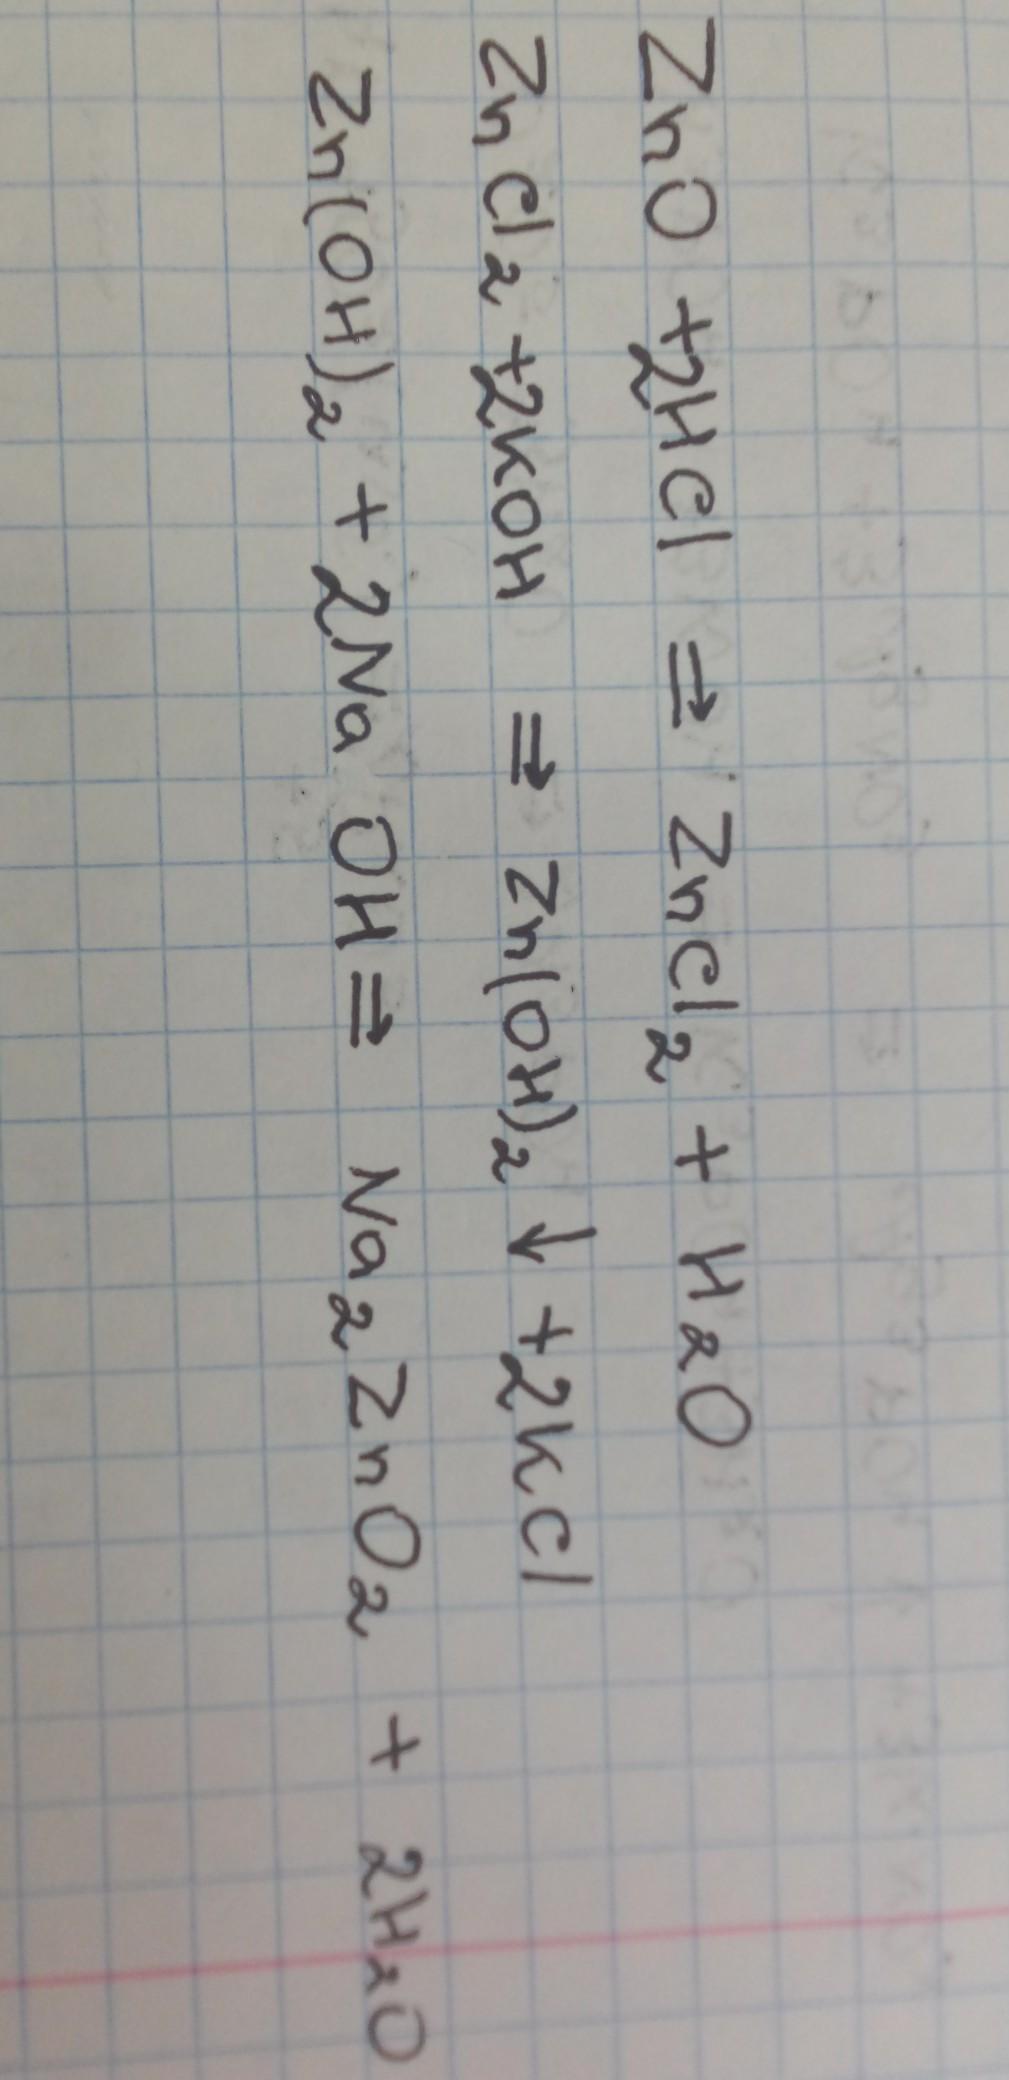 ZnO + 2HCl ⇒ ZnCl₂ + H₂O
ZnCl₂ + 2KOH ⇒ Zn(OH)₂↓ + 2KCl
Zn(OH)₂ + 2NaOH ⇒ Na₂ZnO₂ + 2H₂O